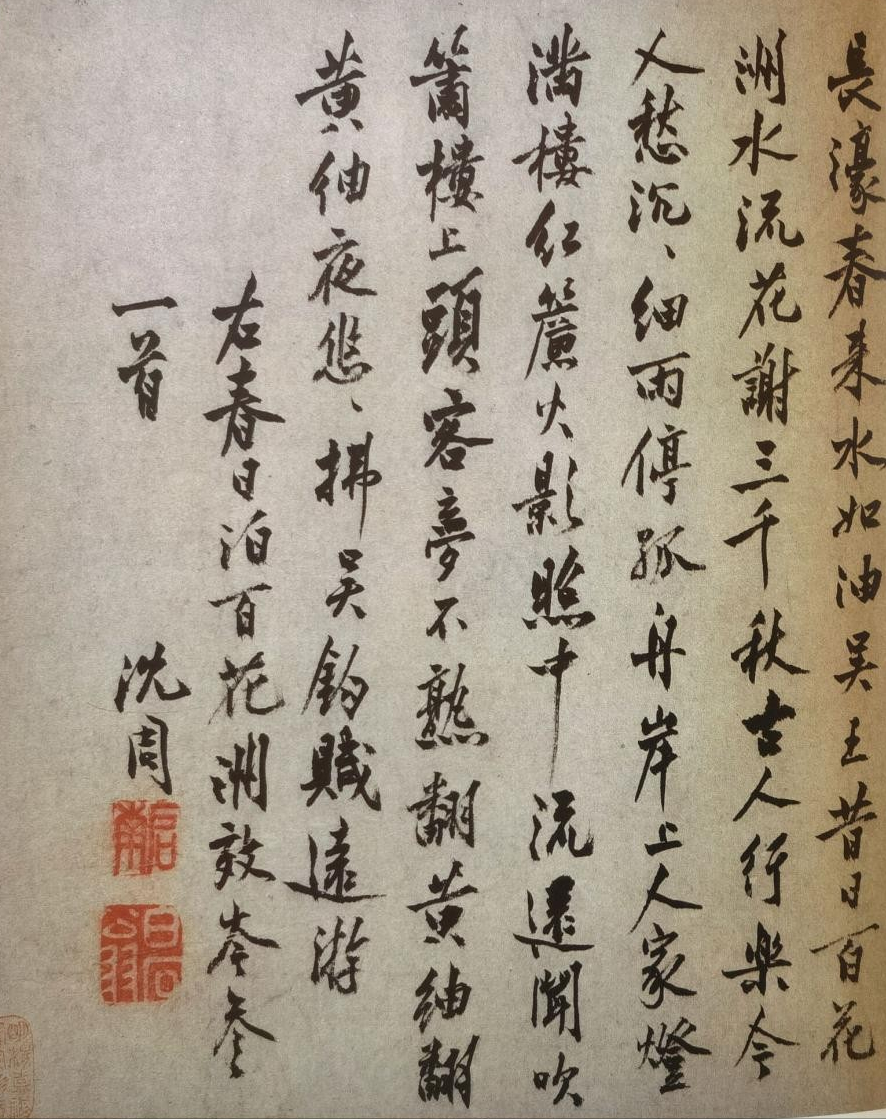 長濠春来水如油吴王昔日百花
洲水流花謝三千秋古人行樂今
人愁沉、細雨停孤舟岸上人家燈
滿樓紅簾火影照中流還聞吹
簫樓上頭客夢不熟翻黄紬翻
黄紬夜悠、拂吴鉤賦遠游
右春日泊百花洲效岑參
一首
沈周
啓南
白石翁